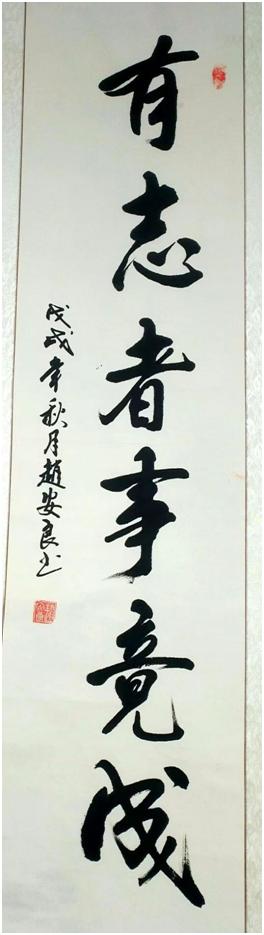 有志者事竟成
戊戌年秋月趙安良书